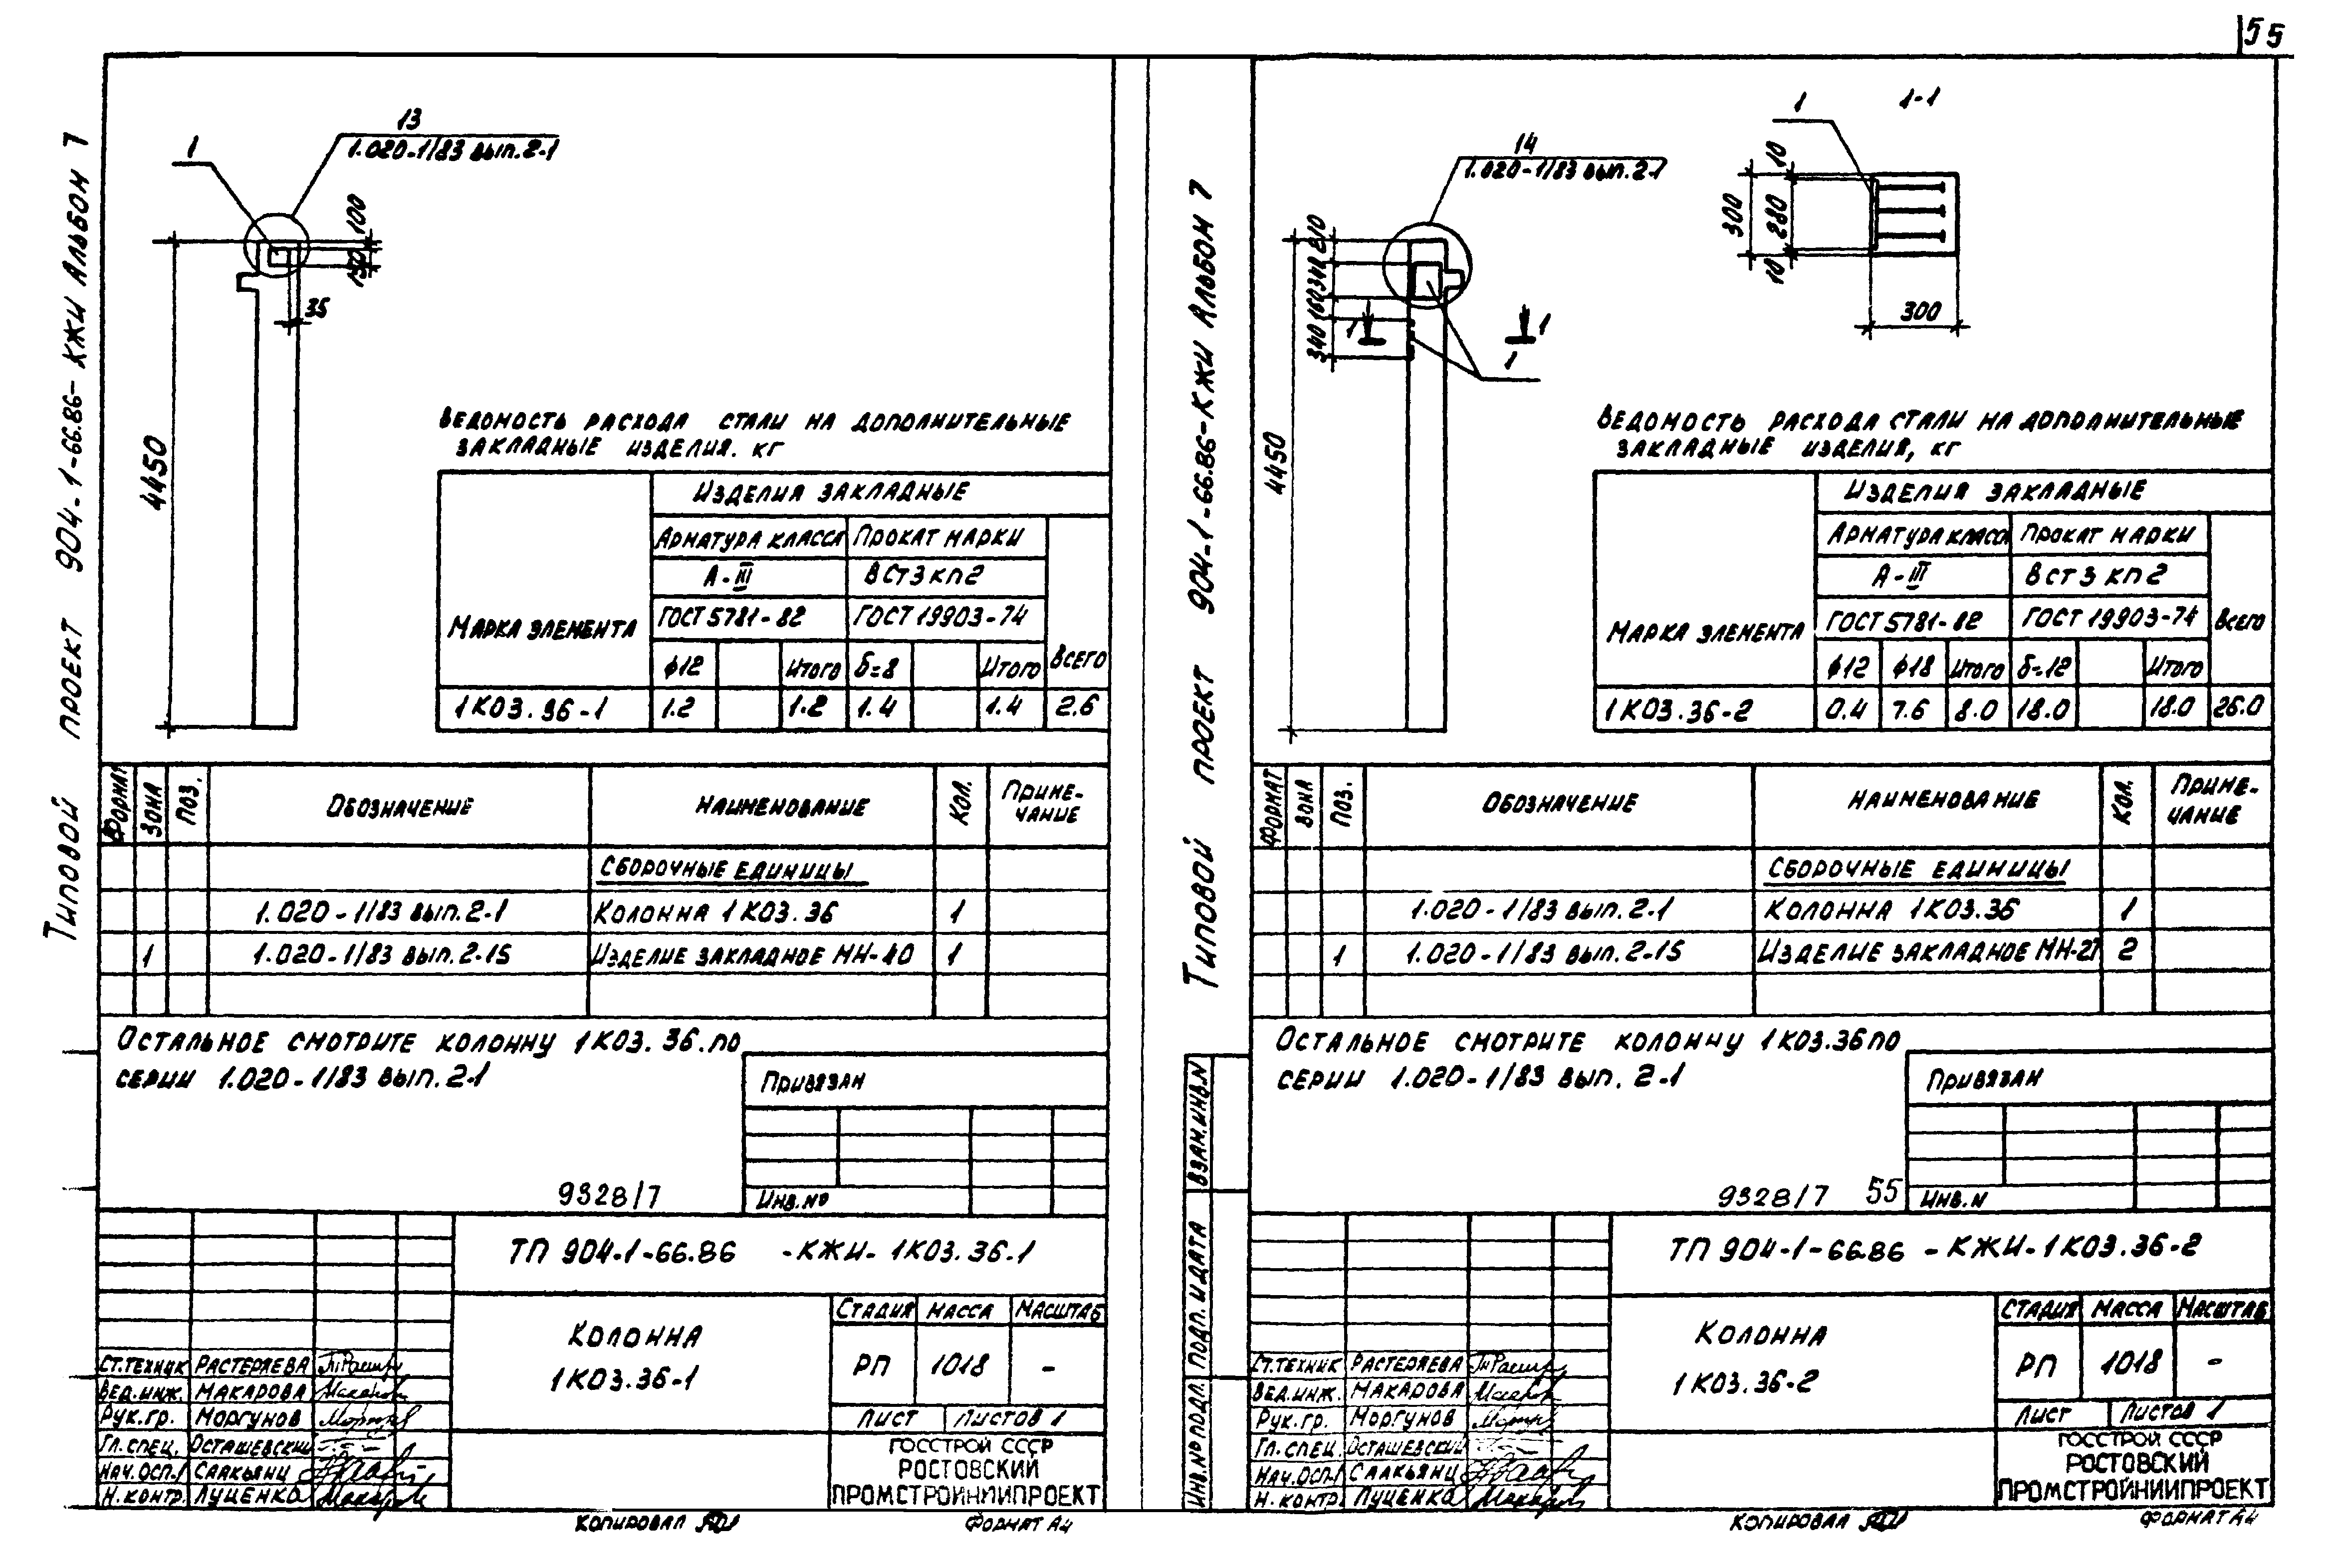 55
Типовой проект 904-1-66.86-КЖИ Альбом 7
13
1.020-1/83 вып.2-1
1
100
150
35
4450
Ведомость расхода стали на дополнительные
закладные изделия. кг
Марка элемента
Изделия закладные
Арматура класса
Прокат марки
А-III
ВСт3кп2
ГОСТ 5781-82
ГОСТ 19903-74
Всего
ф12
Итого
δ=8
Итого
1К03.36-1
1.2
1.2
1.4
1.4
2.6
Формат
Зона
Поз.
Обозначение
Наименование
Кол.
Приме-
чание
Сборочные единицы
1.020-1/83 вып.2-1
Колонна 1К03.36
1
1
1.020-1/83 вып.2-15
Изделие закладное МН-10
1
Остальное смотрите колонну 1К03.36.по
серии 1.020-1/83 вып.2-1
Привязан
Инв.№
9328/7
ТП 904-1-66.86 -КЖИ- 1К03.36-1
Колонна
1К03.36-1
Стадия
Масса
Масштаб
РП
1018
-
Лист
Листов 1
Госстрой СССР
Ростовский
Промстройниипроект
Ст.техник Растеряева
Вед.инж. Макарова
Рук.гр. Моргунов
Гл.спец. Осташевский
Нач.осп-1 Саакьянц
Н.контр. Луценко
Копировал
Формат А4
Типовой проект 904-1-66.86-КЖИ Альбом 7
14
1.020-1/83 вып.2-1
210
340
160
340
1
1
1
4450
1
1-1
10
300
280
10
300
Ведомость расхода стали на дополнительные
закладные изделия, кг
Марка элемента
Изделия закладные
Арматура класса
Прокат марки
А-III
ВСт3кп2
ГОСТ 5781-82
ГОСТ 19903-74
Всего
ф12
ф18
Итого
δ=12
Итого
1К03.36-2
0.4
7.6
8.0
18.0
18.0
26.0
Формат
Зона
Поз.
Обозначение
Наименование
Кол.
Приме-
чание
Сборочные единицы
1.020-1/83 вып.2-1
Колонна 1К03.36
1
1
1.020-1/83 вып.2-15
Изделие закладное МН-27
2
Остальное смотрите колонну 1К03.36 по
серии 1.020-1/83 вып. 2-1
Привязан
Инв.N
9328/7 55
Взам.инв.N
Подп. и дата
Инв.№ подл.
ТП 904-1-66.86 -КЖИ-1К03.36-2
Колонна
1К03.36-2
Стадия
Масса
Масштаб
РП
1018
-
Лист
Листов 1
Госстрой СССР
Ростовский
Промстройниипроект
Ст.техник Растеряева
Вед.инж. Макарова
Рук.гр. Моргунов
Гл.спец. Осташевский
Нач.осп-1 Саакьянц
Н.контр. Луценко
Копировал
Формат А4